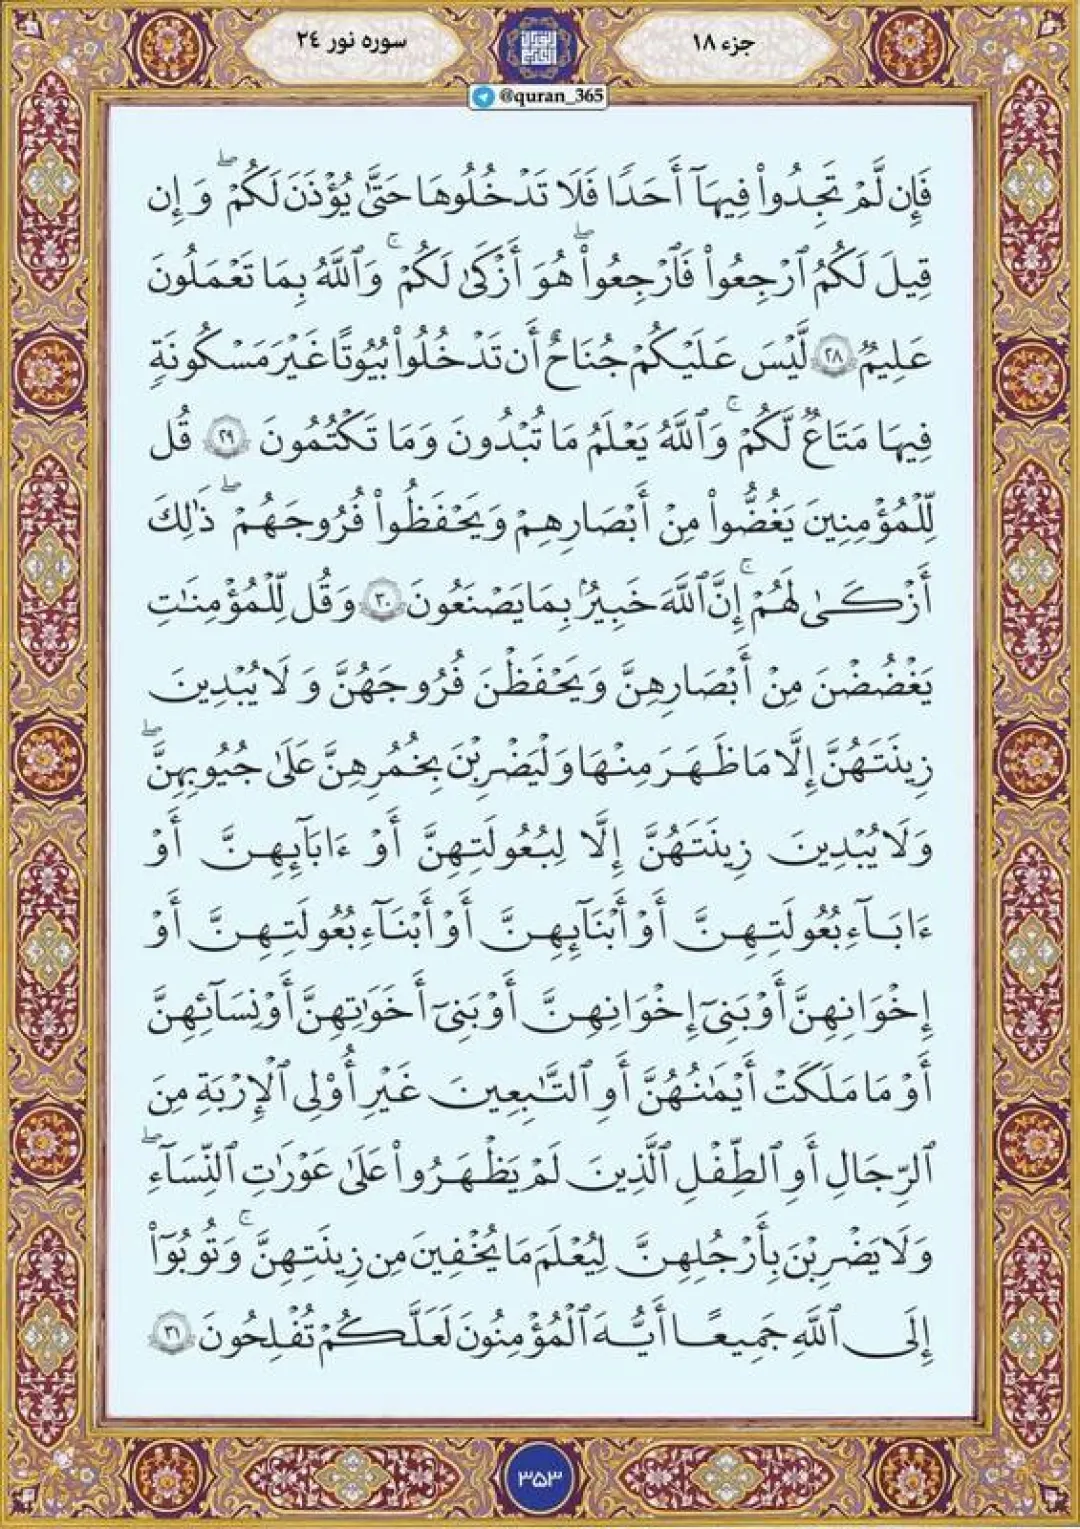 جزء ۱۸
سوره نور ۲۴
@quran_365
فَإِن لَّمْ تَجِدُواْ فِيهَآ أَحَدًا فَلَا تَدْخُلُوهَا حَتَّىٰ يُؤْذَنَ لَكُمْ ۖ وَإِن
قِيلَ لَكُمُ ٱرْجِعُواْ فَٱرْجِعُواْ ۖ هُوَ أَزْكَىٰ لَكُمْ ۚ وَٱللَّهُ بِمَا تَعْمَلُونَ
عَلِيمٌ ٢٨ لَّيْسَ عَلَيْكُمْ جُنَاحٌ أَن تَدْخُلُواْ بُيُوتًا غَيْرَ مَسْكُونَةٍ
فِيهَا مَتَاعٌ لَّكُمْ ۚ وَٱللَّهُ يَعْلَمُ مَا تُبْدُونَ وَمَا تَكْتُمُونَ ٢٩ قُل
لِّلْمُؤْمِنِينَ يَغُضُّواْ مِنْ أَبْصَارِهِمْ وَيَحْفَظُواْ فُرُوجَهُمْ ۖ ذَٰلِكَ
أَزْكَىٰ لَهُمْ ۚ إِنَّ ٱللَّهَ خَبِيرٌۢ بِمَا يَصْنَعُونَ ٣٠ وَقُل لِّلْمُؤْمِنَـٰتِ
يَغْضُضْنَ مِنْ أَبْصَارِهِنَّ وَيَحْفَظْنَ فُرُوجَهُنَّ وَلَا يُبْدِينَ
زِينَتَهُنَّ إِلَّا مَا ظَهَرَ مِنْهَا وَلْيَضْرِبْنَ بِخُمُرِهِنَّ عَلَىٰ جُيُوبِهِنَّ ۖ
وَلَا يُبْدِينَ زِينَتَهُنَّ إِلَّا لِبُعُولَتِهِنَّ أَوْ ءَابَآئِهِنَّ أَوْ
ءَابَآءِ بُعُولَتِهِنَّ أَوْ أَبْنَآئِهِنَّ أَوْ أَبْنَآءِ بُعُولَتِهِنَّ أَوْ
إِخْوَانِهِنَّ أَوْ بَنِىٓ إِخْوَانِهِنَّ أَوْ بَنِىٓ أَخَوَٰتِهِنَّ أَوْ نِسَآئِهِنَّ
أَوْ مَا مَلَكَتْ أَيْمَـٰنُهُنَّ أَوِ ٱلتَّـٰبِعِينَ غَيْرِ أُوْلِى ٱلْإِرْبَةِ مِنَ
ٱلرِّجَالِ أَوِ ٱلطِّفْلِ ٱلَّذِينَ لَمْ يَظْهَرُواْ عَلَىٰ عَوْرَٰتِ ٱلنِّسَآءِ ۖ
وَلَا يَضْرِبْنَ بِأَرْجُلِهِنَّ لِيُعْلَمَ مَا يُخْفِينَ مِن زِينَتِهِنَّ ۚ وَتُوبُوٓاْ
إِلَى ٱللَّهِ جَمِيعًا أَيُّهَ ٱلْمُؤْمِنُونَ لَعَلَّكُمْ تُفْلِحُونَ ٣١
۳۵۳